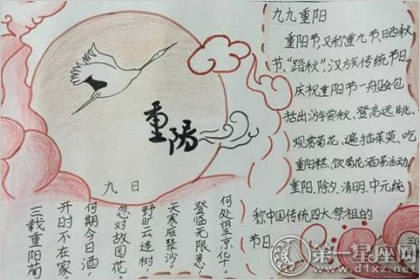 九九重阳
重阳节,又称重九节、晒秋
节、“踏秋”,汉族传统节日
庆祝重阳节一般会包
括出游赏秋、登高远眺、
观赏菊花、遍插茱萸、吃
重阳糕、饮菊花酒等活动
重阳、除夕、清明、中元统
称中国传统四大祭祖的
节日
重陽
九日
三载重阳菊
开时不在家
何期今日酒
忽对故园花
野旷云连树
天寒雁聚沙
登临无限意
何处望京华
第一星座网
www.d1xz.net